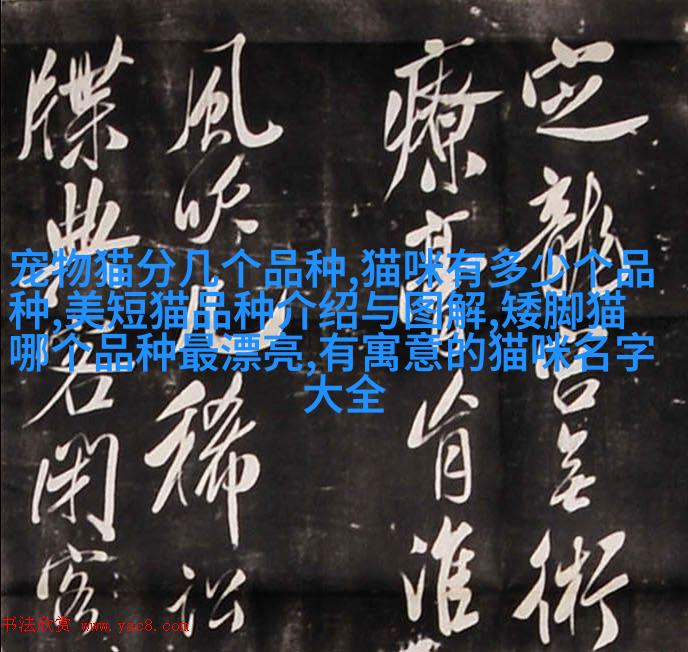 龍 無術
療 肓准
風吹 稀訟
牒 閑客
宠物猫分几个品种,猫咪有多少个品
种,美短猫品种介绍与图解,矮脚猫
哪个品种最漂亮,有寓意的猫咪名字
大全
书法欣赏 www.yac8.com